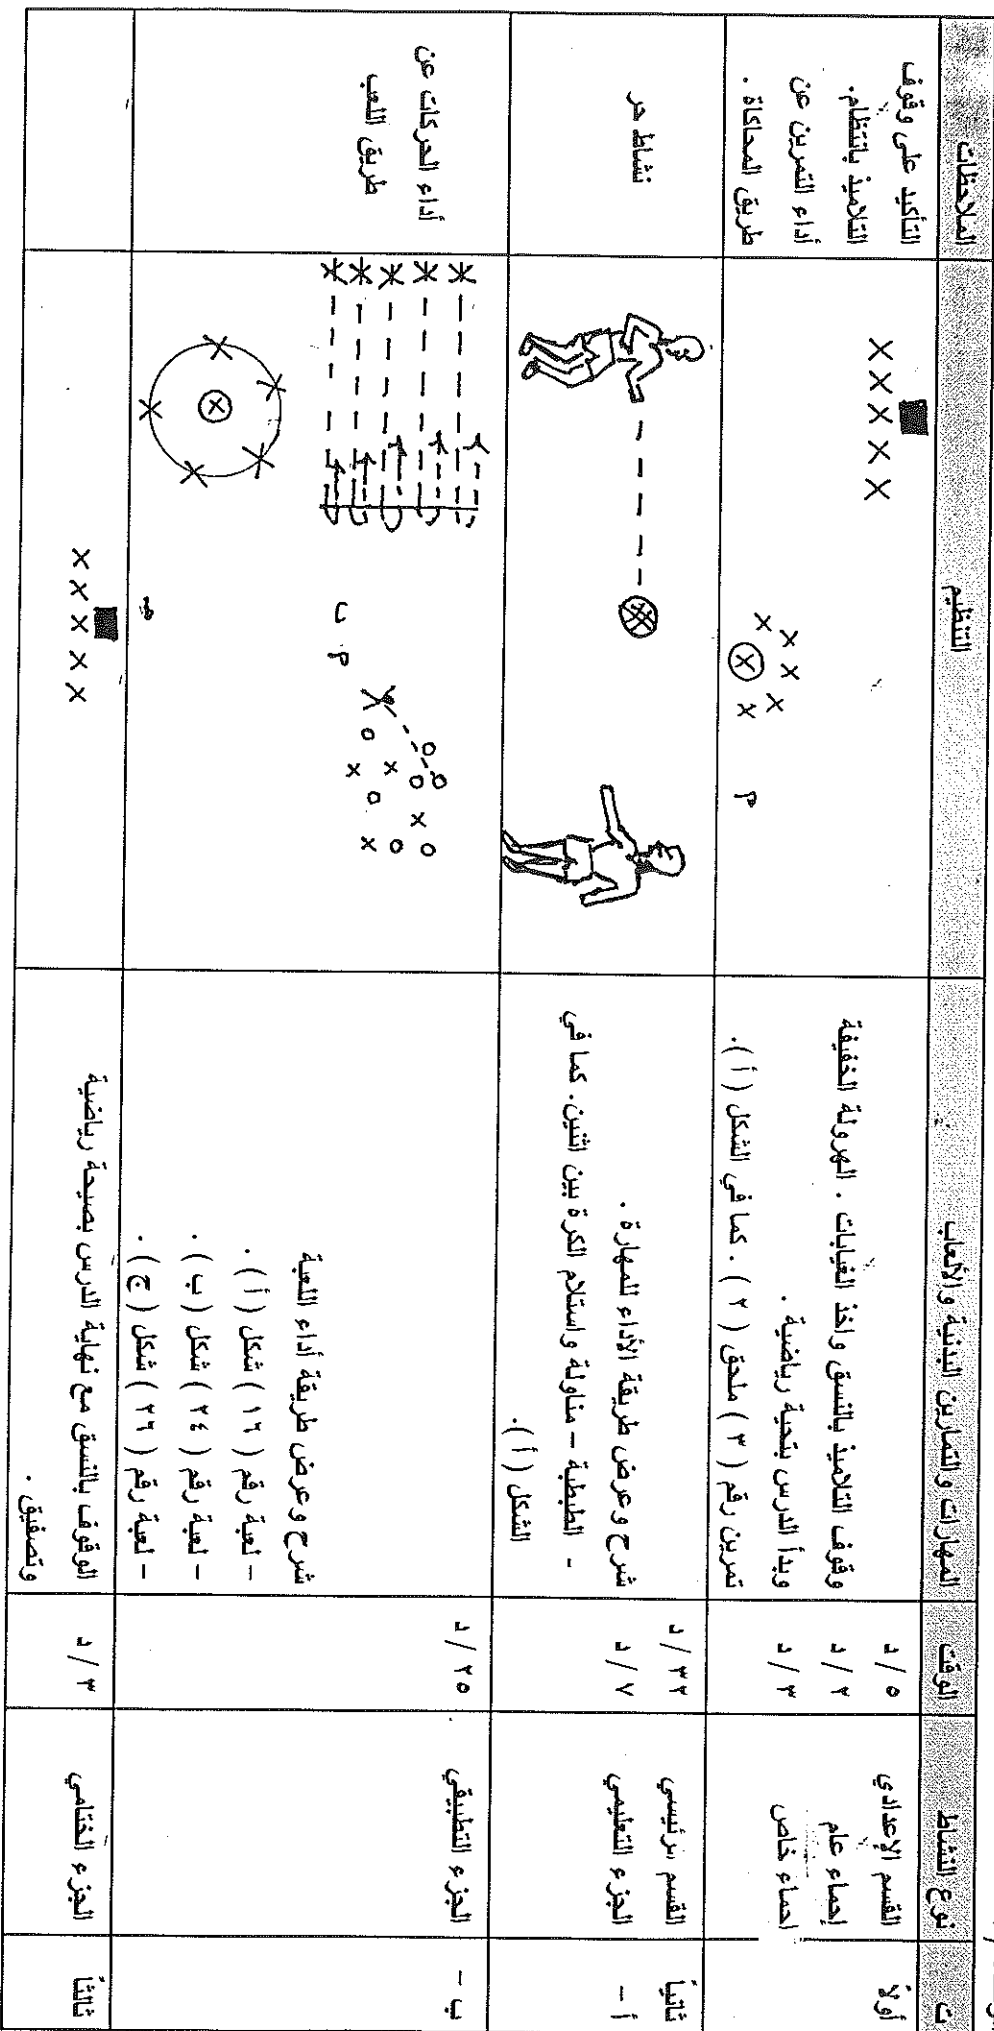 ت
نوع النشاط
الوقت
المهارات والتمارين البدنية والألعاب
التنظيم
الملاحظات
أولاً
القسم الإعدادي
٥ / د
إحماء عام
٢ / د
وقوف التلاميذ بالنسق واخذ الغيابات . الهرولة الخفيفة
احماء خاص
٣ / د
وبدأ الدرس بتحية رياضية .
تمرين رقم ( ٣ ) ملحق ( ٢ ) . كما في الشكل ( أ ).
التأكيد على وقوف
التلاميذ بانتظام.
أداء التمرين عن
طريق المحاكاة .
ثانياً
القسم الرئيسي
٣٢ / د
أ -
الجزء التعليمي
٧ / د
شرح وعرض طريقة الأداء للمهارة .
- الطبطبة - مناولة واستلام الكرة بين اثنين. كما في
الشكل ( أ ).
نشاط حر
ب -
الجزء التطبيقي
٢٥ / د
شرح وعرض طريقة أداء اللعبة
- لعبة رقم ( ١٦ ) شكل ( أ ) .
- لعبة رقم ( ٢٤ ) شكل ( ب ) .
- لعبة رقم ( ٢٦ ) شكل ( ج ) .
أداء الحركات عن
طريق اللعب
ثالثاً
الجزء الختامي
٣ / د
الوقوف بالنسق مع نهاية الدرس بصيحة رياضية
وتصفيق .